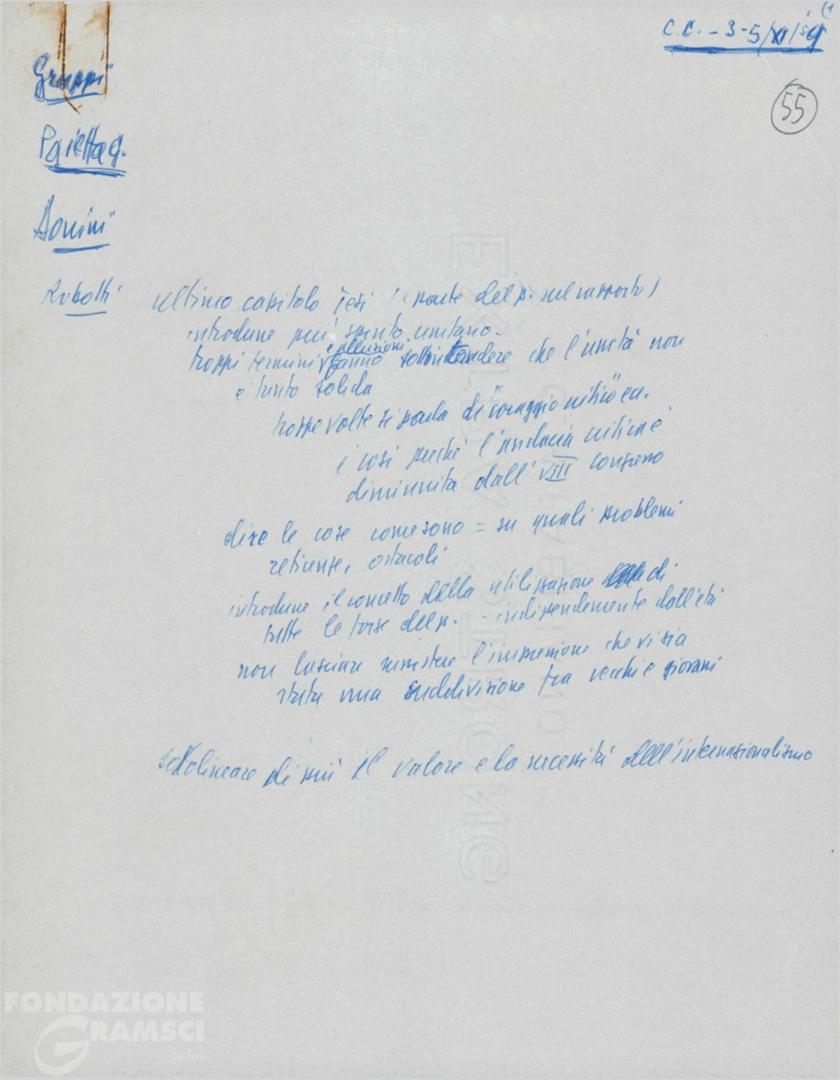 C.C. - 3-5/XI/59
55
Gruppi
Pajetta G.
Donini
Robotti
ultimo capitolo tesi ( parte del p. nel rapporto)
introdurre più spirito unitario -
troppi termini e allusioni fanno sottintendere che l'unità non
è tanto solida
troppe volte si parla di "coraggio critico" ecc.
è così perché l'audacia critica è
diminuita dall'VIII congresso
dire le cose come sono = su quali problemi
reticenze, ostacoli
introdurre il concetto della utilizzazione di
tutte le forze del p. - indipendemente dall'età
non lasciare sussistere l'impressione che vi sia
stata una suddivisione tra vecchi e giovani
sottolineare di più il valore e la necessità dell'internazionalismo
FONDAZIONE
GRAMSCI
onlus